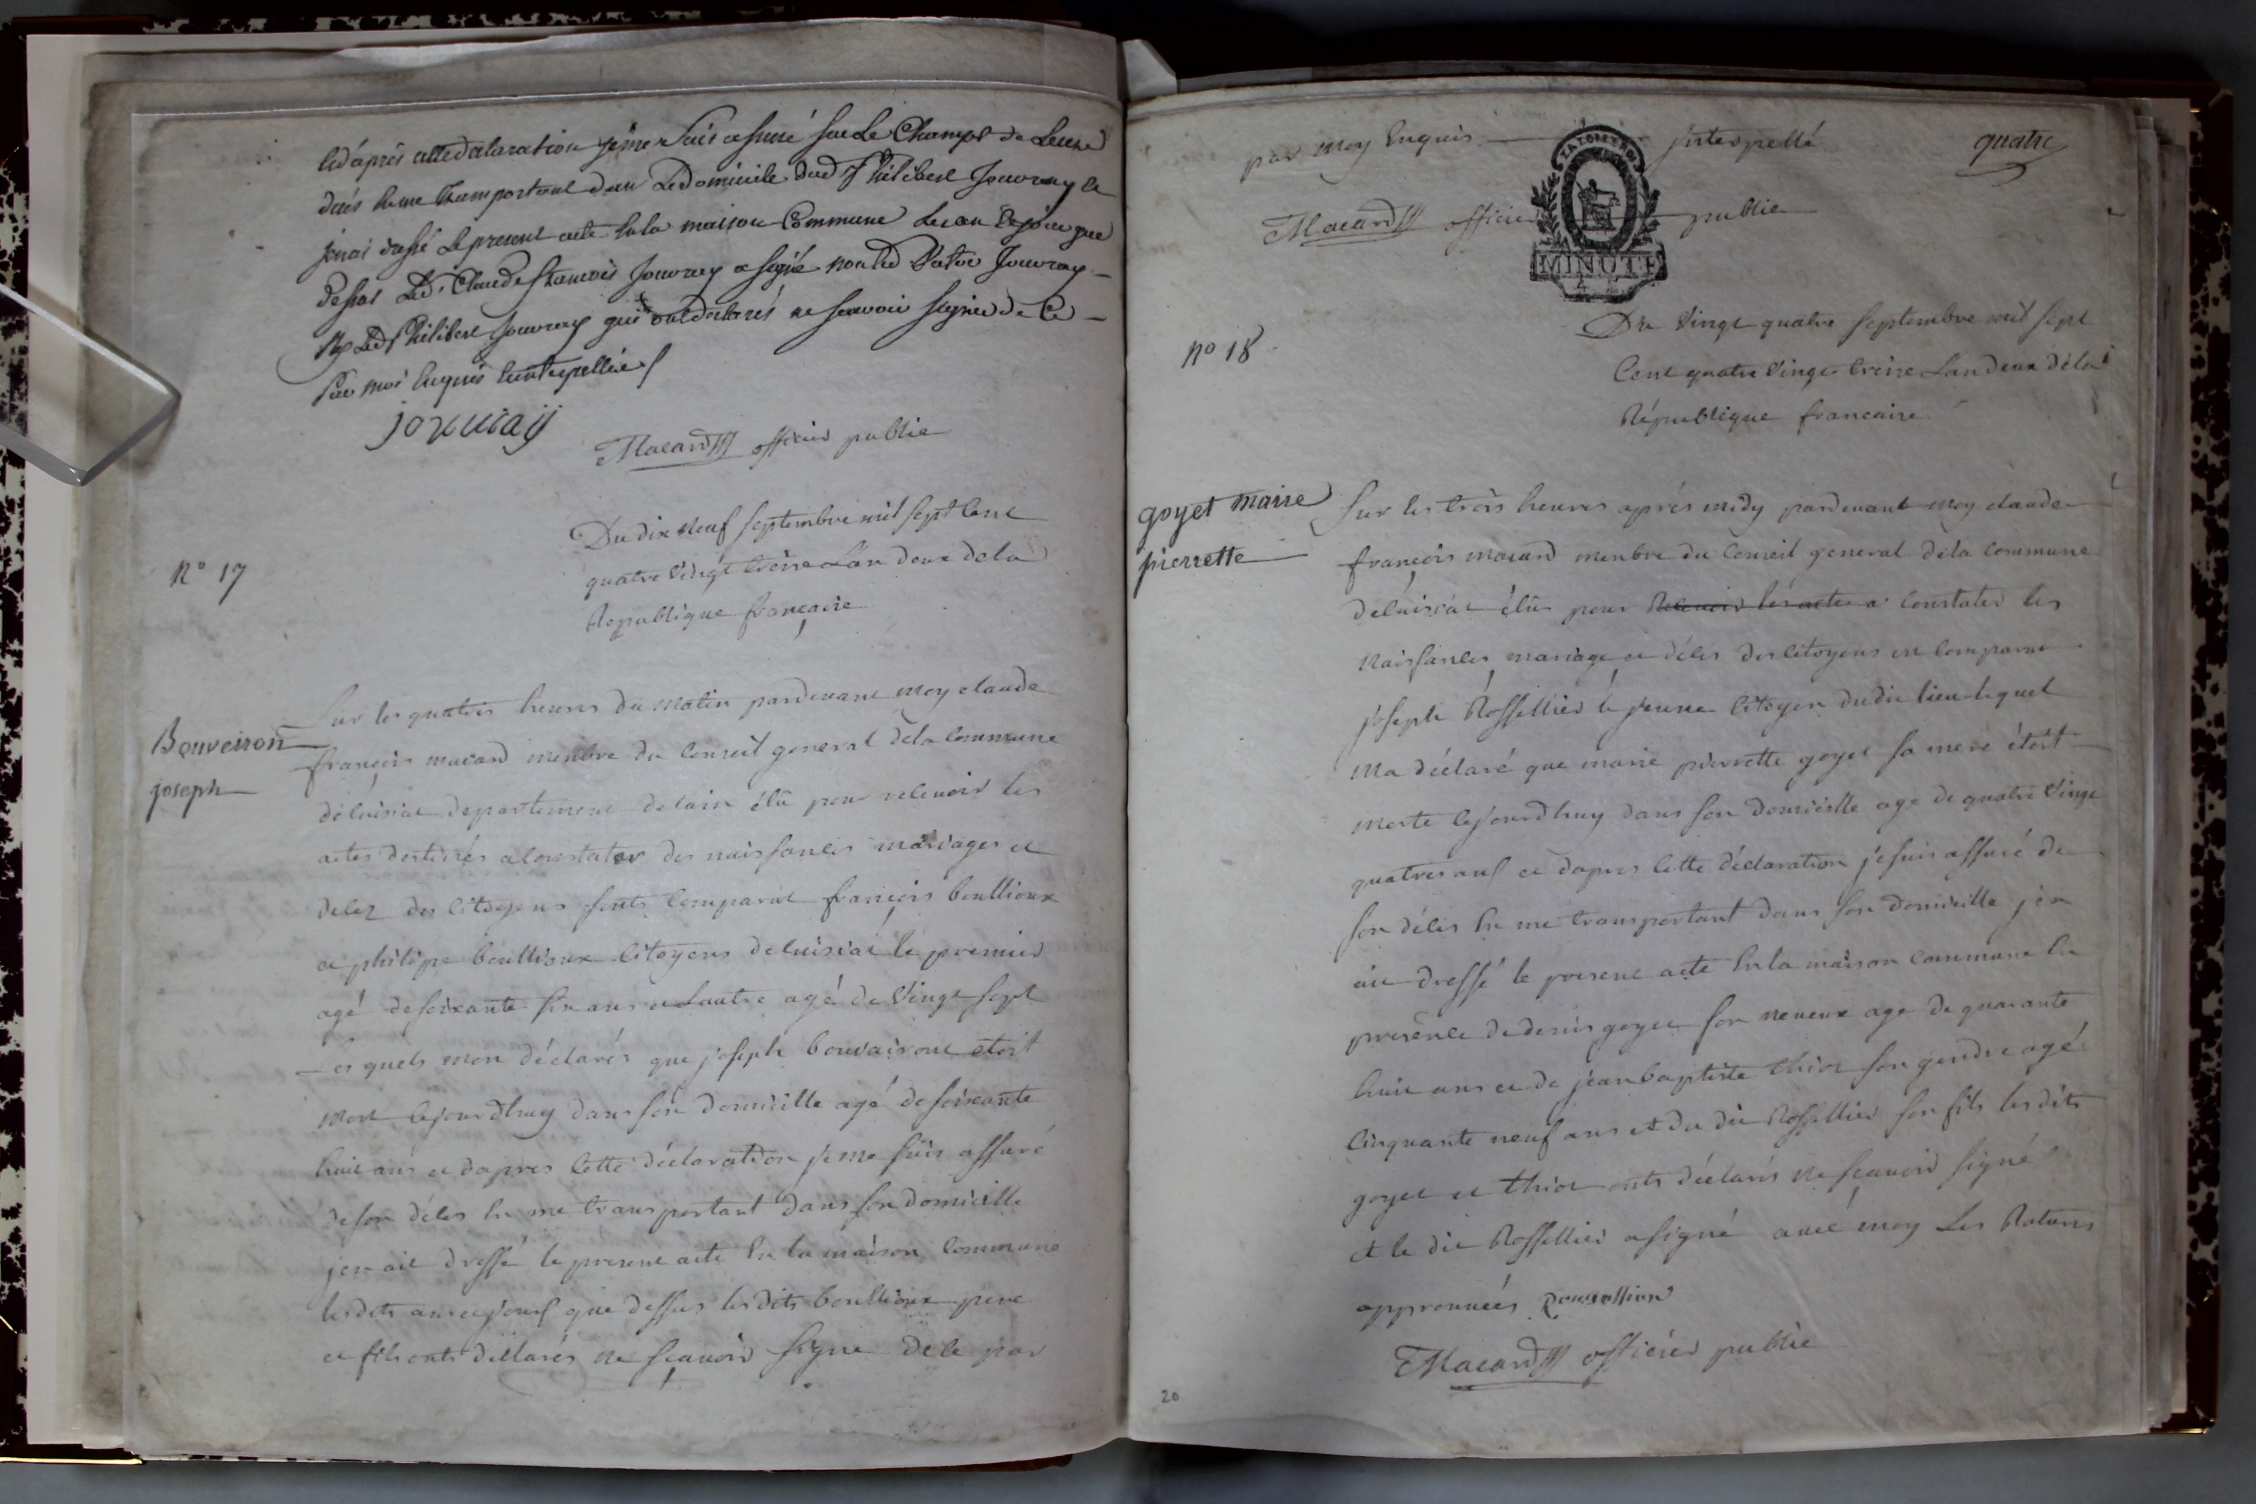 dans le me transportant dans le domicile dud Philibert Jouvray et
j'enai dressé le present acte en la maison Commune les an et jour que
dessus Led. Claude francois Jouvray a signé non led Jouvray
Led Philibert Jouvray qui ont déclarés ne scavoir signer de ce
Par moi Enquis
jouvray
Macard officier public
N° 17
Du dix neuf septembre mil sept cent
quatre vingt treize L'an deux de la
Republique françaire
Bouveiron
joseph
Sur les quatres heures du matin pardevant moy claude
françois macard menbre du conseil general dela commune
deluisiat departement delain élû pour recevoir les
actes destinés a constater des naissances mariages et
deces des citoyens sonts comparut françois boullioux
et philipe boullioux citoyens deluisiat le premier
agé desoixante six ans et Lautre agé de vingt sept
Les quels mon déclarés que joseph bouvairont etoit
mort cejourdhuy dans son domicille agé de soixante
huit ans et dapres cette déclaration je me suis assuré
de son déces en me transportant dans son domicille
jen ait dressé le present acte en la maison commune
lesdits an et jour que dessus les dits boullioux pere
et fils onts dellarés ne sçavoir signe dece par
par moy Enquis interpellé
quatre
Macard officier public
MINUTE
N° 18
Du vingt quatre septembre mil sept
Cent quatre vingt treize Lan deux déla
République francaire
goyet marie
pierrette
Sur les trois heures après midy pardevant moy claude
françois macard menbre du conseil general déla commune
deluisiat élûs pour recevoir les actes a constater les
naissances mariage et déces des citoyens est comparut
joseph Rossellier le jeune citoyen dudit lieu lequel
ma déclaré que marie pierrette goyet sa mere étoit
morte cejourdhuy dans son domicille age de quatre vingt
quatres ans et dapres cette déclaration je suis assuré de
son déces en me transportant dans son domicille j'en
ait dressé le present acte en la maison commune en
presence de denis goyet son neveux age de quarante
huit ans et de jean baptiste thiot son gendre agé
cinquante neuf ans et du dit Rossellier son fils les dits
goyet et thiot onts déclarés ne sçavoir signé
et le dit Rossellier a signé avec moy Les Ratures
approuvées Roussellier
Macard officier public
20